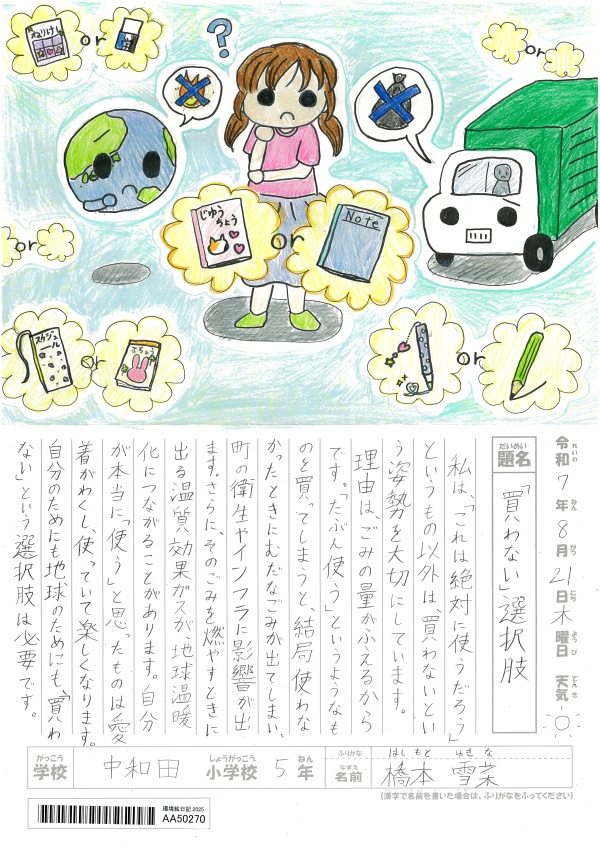 ねりけし
or
?
or
or
じゆうちょう
or
Note
スケジュール
or
めもちょう
or
令和7年8月21日木曜日 天気
れいわ ねん がつ にち ようび てんき
だいめい
題名
「買わない」選択肢
私は、「これは絶対に使うだろう」
というもの以外は、買わないとい
う姿勢を大切にしています。
理由は、ごみの量がふえるから
です。「たぶん使う」というようなも
のを買ってしまうと、結局使わな
かったときにむだなごみが出てしまい、
町の衛生やインフラに影響が出
ます。さらに、そのごみを燃やすときに
出る温質効果ガスが、地球温暖
化につながることがあります。自分
が本当に「使う」と思ったものは愛
着がわくし、使っていて楽しくなります。
自分のためにも地球のためにも、「買わ
ない」という選択肢は必要です。
がっこう
学校
中和田
しょうがっこう
小学校
5
ねん
年
ふりがな
はしもと ゆきな
なまえ
名前
橋本 雪菜
(漢字で名前を書いた場合は、ふりがなをふってください)
環境絵日記 2025
AA50270